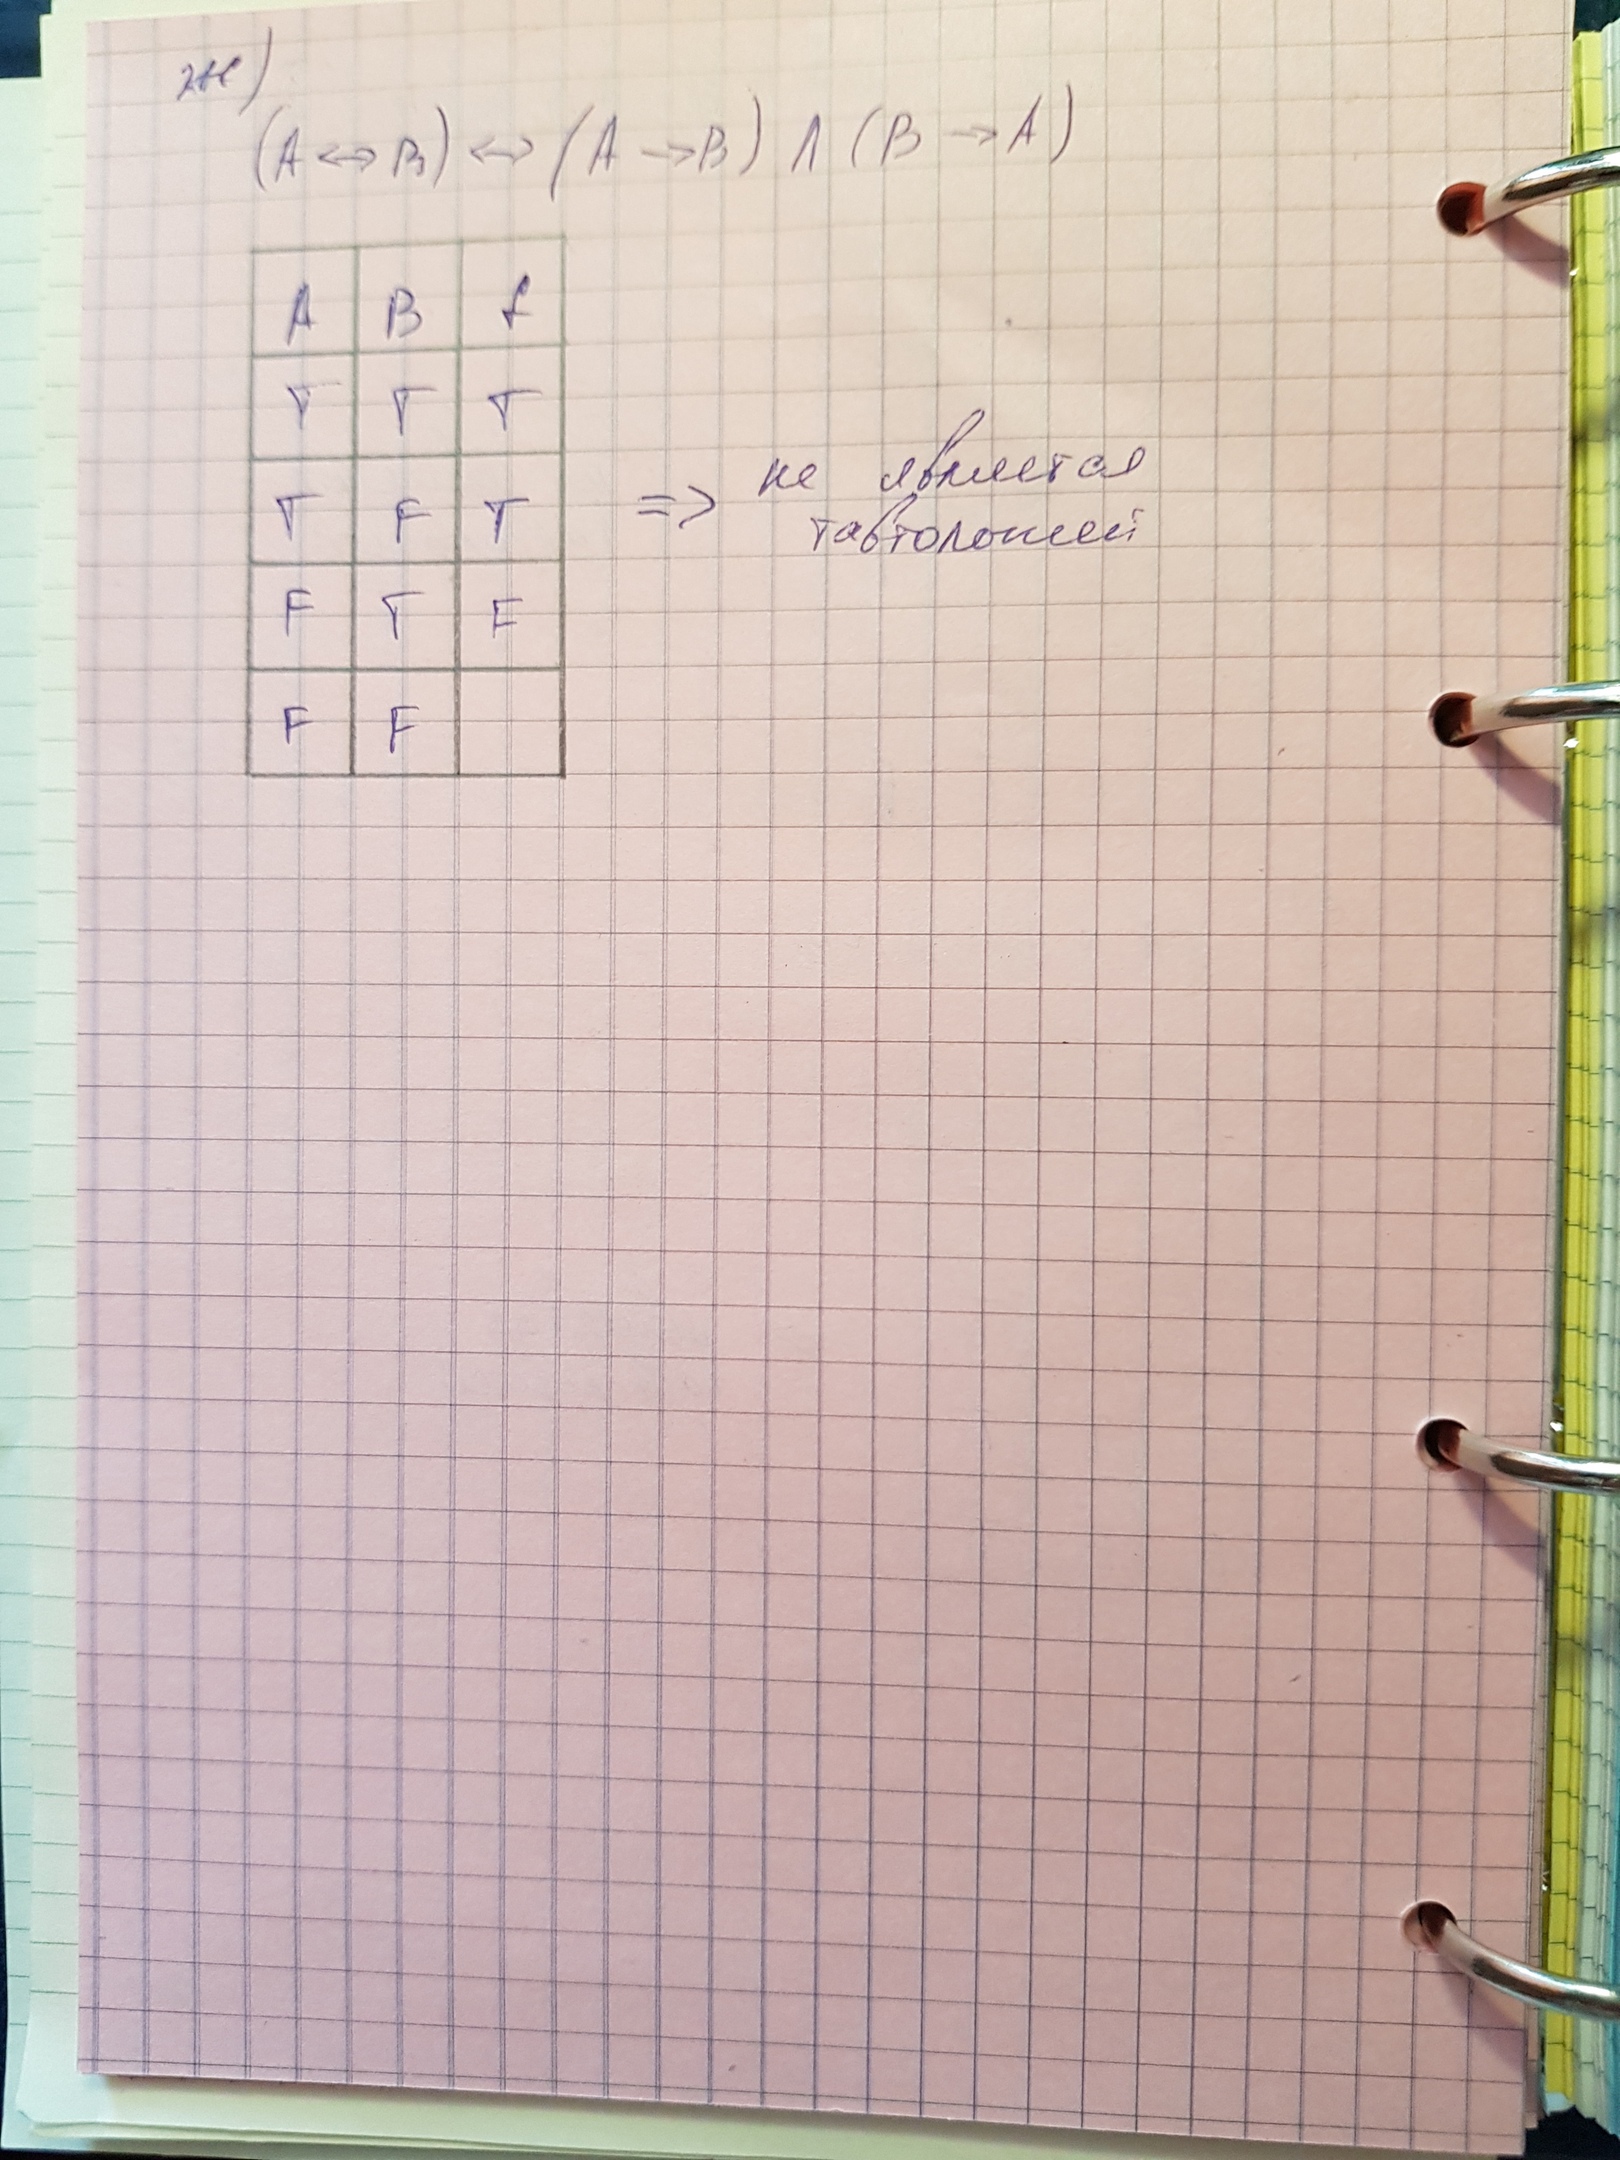 ж)
(A ↔ B) ↔ (A → B) ∧ (B → A)
A B f
T T T
T F T
F T F
F F
=> не является
тавтологией